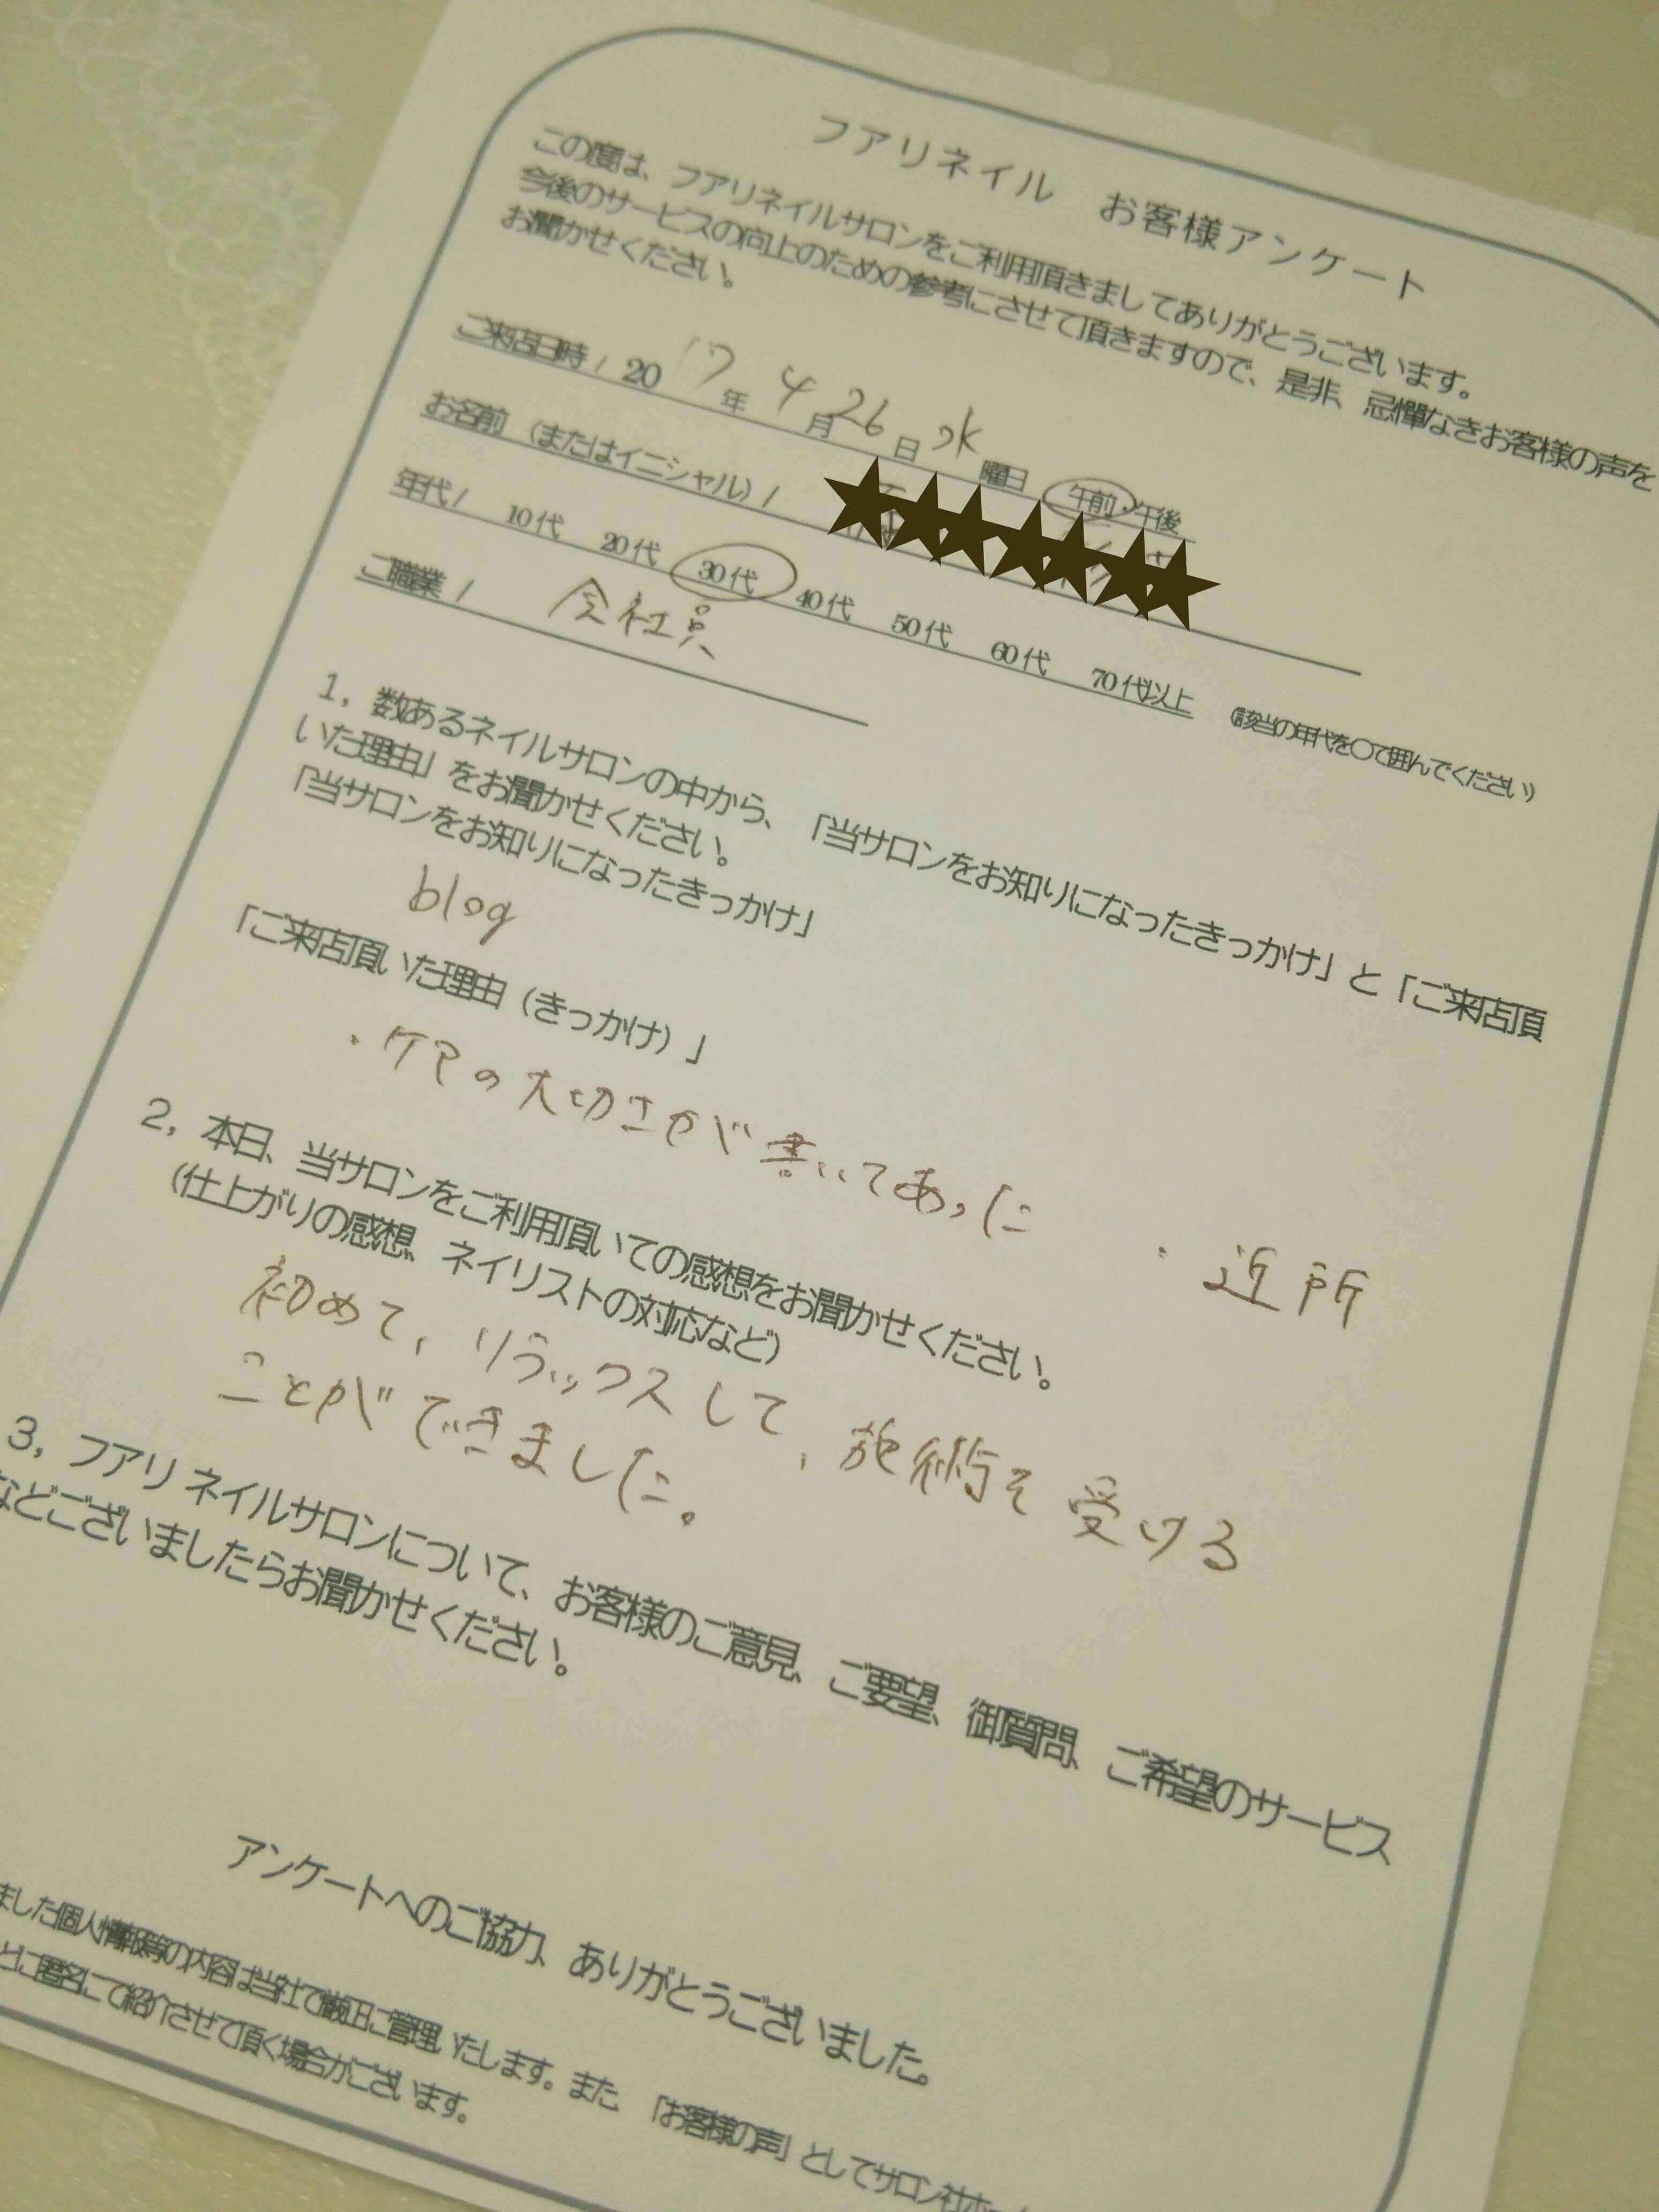 フアリネイル　お客様アンケート
この度は、フアリネイルサロンをご利用頂きましてありがとうございます。
今後のサービスの向上のための参考にさせて頂きますので、是非、忌憚なきお客様の声を
お聞かせください。
ご来店日時 / 2017年 4月 26日 水曜日 午前・午後
お名前（またはイニシャル）/
年代 / 10代 20代 30代 40代 50代 60代 70代以上 （該当の年代を〇で囲んでください）
ご職業 / 会社員
1，数あるネイルサロンの中から、「当サロンをお知りになったきっかけ」と「ご来店頂
いた理由」をお聞かせください。
「当サロンをお知りになったきっかけ」
blog
「ご来店頂いた理由（きっかけ）」
・ケアの大切さが書いてあった ・近所
2，本日、当サロンをご利用頂いての感想をお聞かせください。
（仕上がりの感想、ネイリストの対応など）
初めて、リラックスして、施術を受ける
ことができました。
3，フアリネイルサロンについて、お客様のご意見、ご要望、御質問、ご希望のサービス
などございましたらお聞かせください。
アンケートへのご協力、ありがとうございました。
ました個人情報等の内容は当社で厳正に管理いたします。また、「お客様の声」としてサロン社ホ
どに匿名にて紹介させて頂く場合がございます。